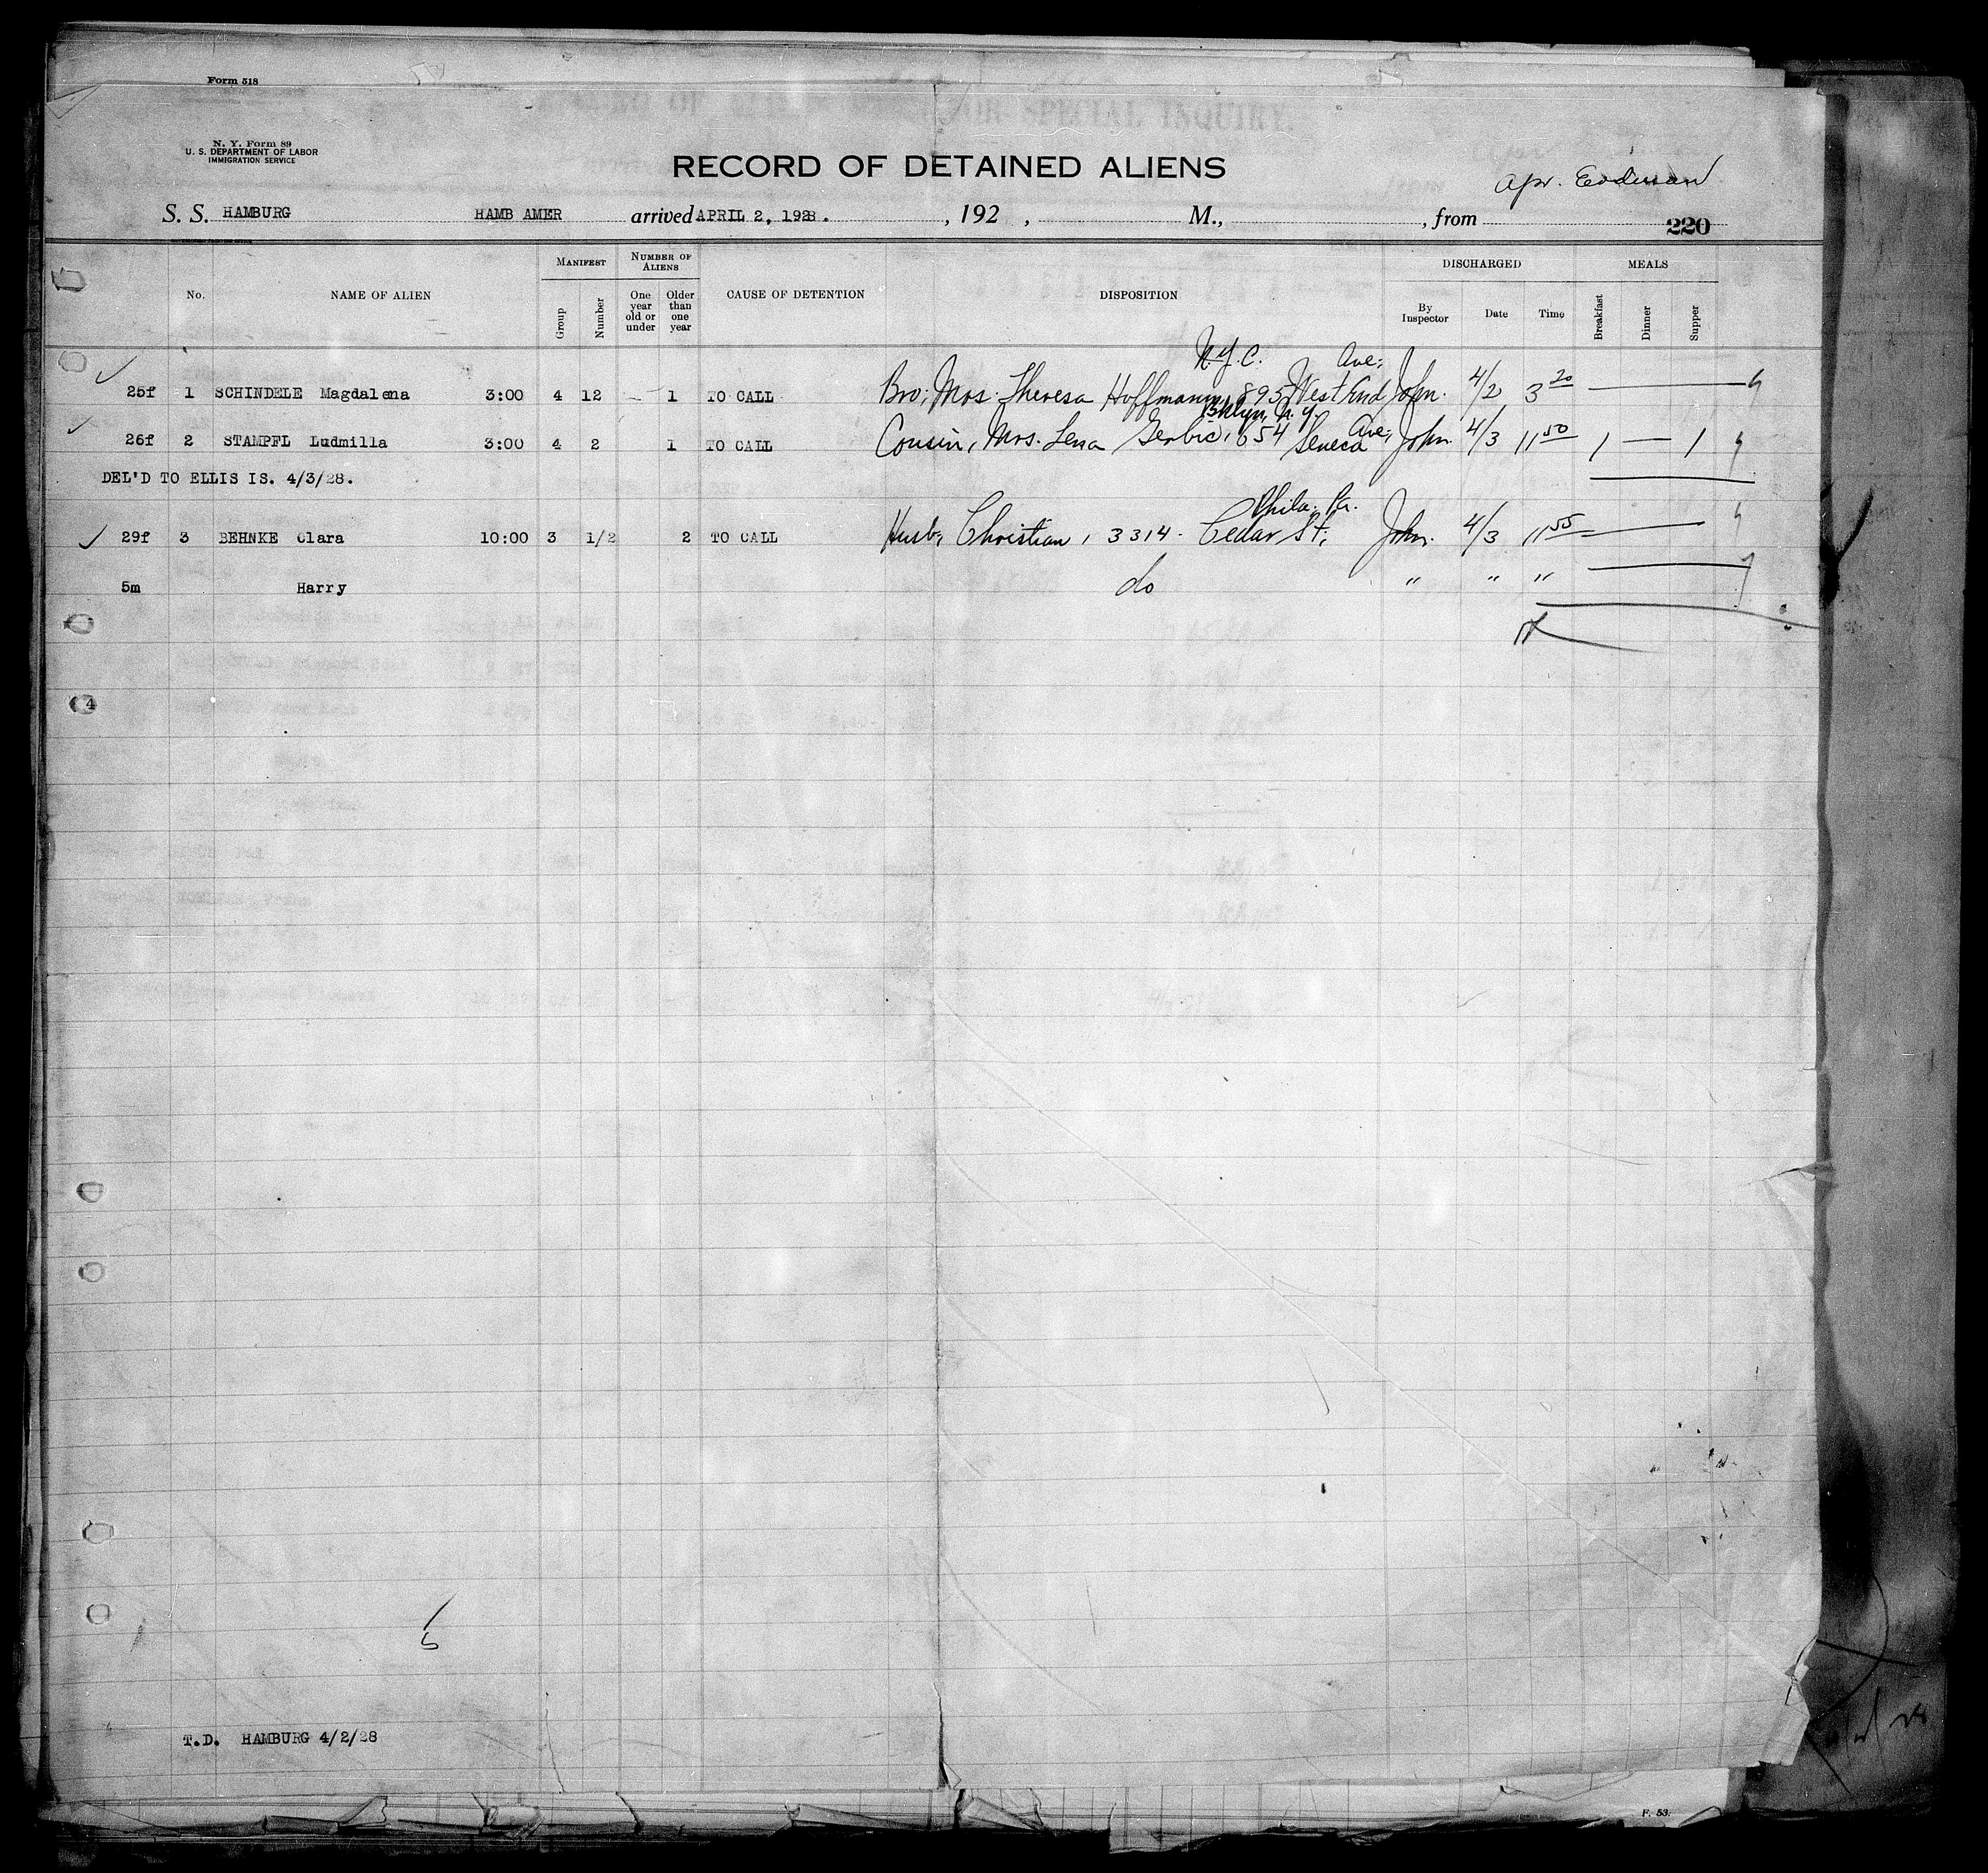 Form 518
N. Y. Form 89
U. S. DEPARTMENT OF LABOR
IMMIGRATION SERVICE
RECORD OF DETAINED ALIENS
Apr.
S. S. HAMBURG HAMB AMER arrived APRIL 2, 1928. , 192 , M., , from 220
MANIFEST NUMBER OF ALIENS DISCHARGED MEALS
No. NAME OF ALIEN Group Number One year old or under Older than one year CAUSE OF DETENTION DISPOSITION By Inspector Date Time Breakfast Dinner Supper
N.Y.C. Ave;
25f 1 SCHINDELE Magdalena 3:00 4 12 1 TO CALL Bro; Mrs. Theresa Hoffmann, 895 West End John. 4/2 3 20
Bklyn, N.Y. Ave;
26f 2 STAMPFL Ludmilla 3:00 4 2 1 TO CALL Cousin, Mrs. Lena 654 Seneca John. 4/3 11 50 1 — 1
DEL'D TO ELLIS IS. 4/3/28.
Phila. Pa.
29f 3 BEHNKE Clara 10:00 3 1/2 2 TO CALL Husb, Christian, 3314 - Cedar St; John. 4/3 11 55
5m Harry do " " "
4
T.D. HAMBURG 4/2/28
F. 53.